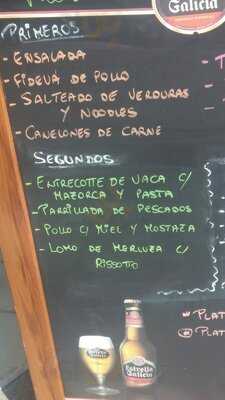 Galicia
PRIMEROS
- ENSALADA
- FIDEUÁ DE POLLO
- SALTEADO DE VERDURAS
Y NOODLES
- CANELONES DE CARNE
SEGUNDOS
- ENTRECOTTE DE VACA C/
MAZORCA Y PASTA
- PARRILLADA DE PESCADOS
- POLLO C/ MIEL Y MOSTAZA
- LOMO DE MERLUZA C/
RISSOTTO
PLAT
PLAT
Estrella
Galicia